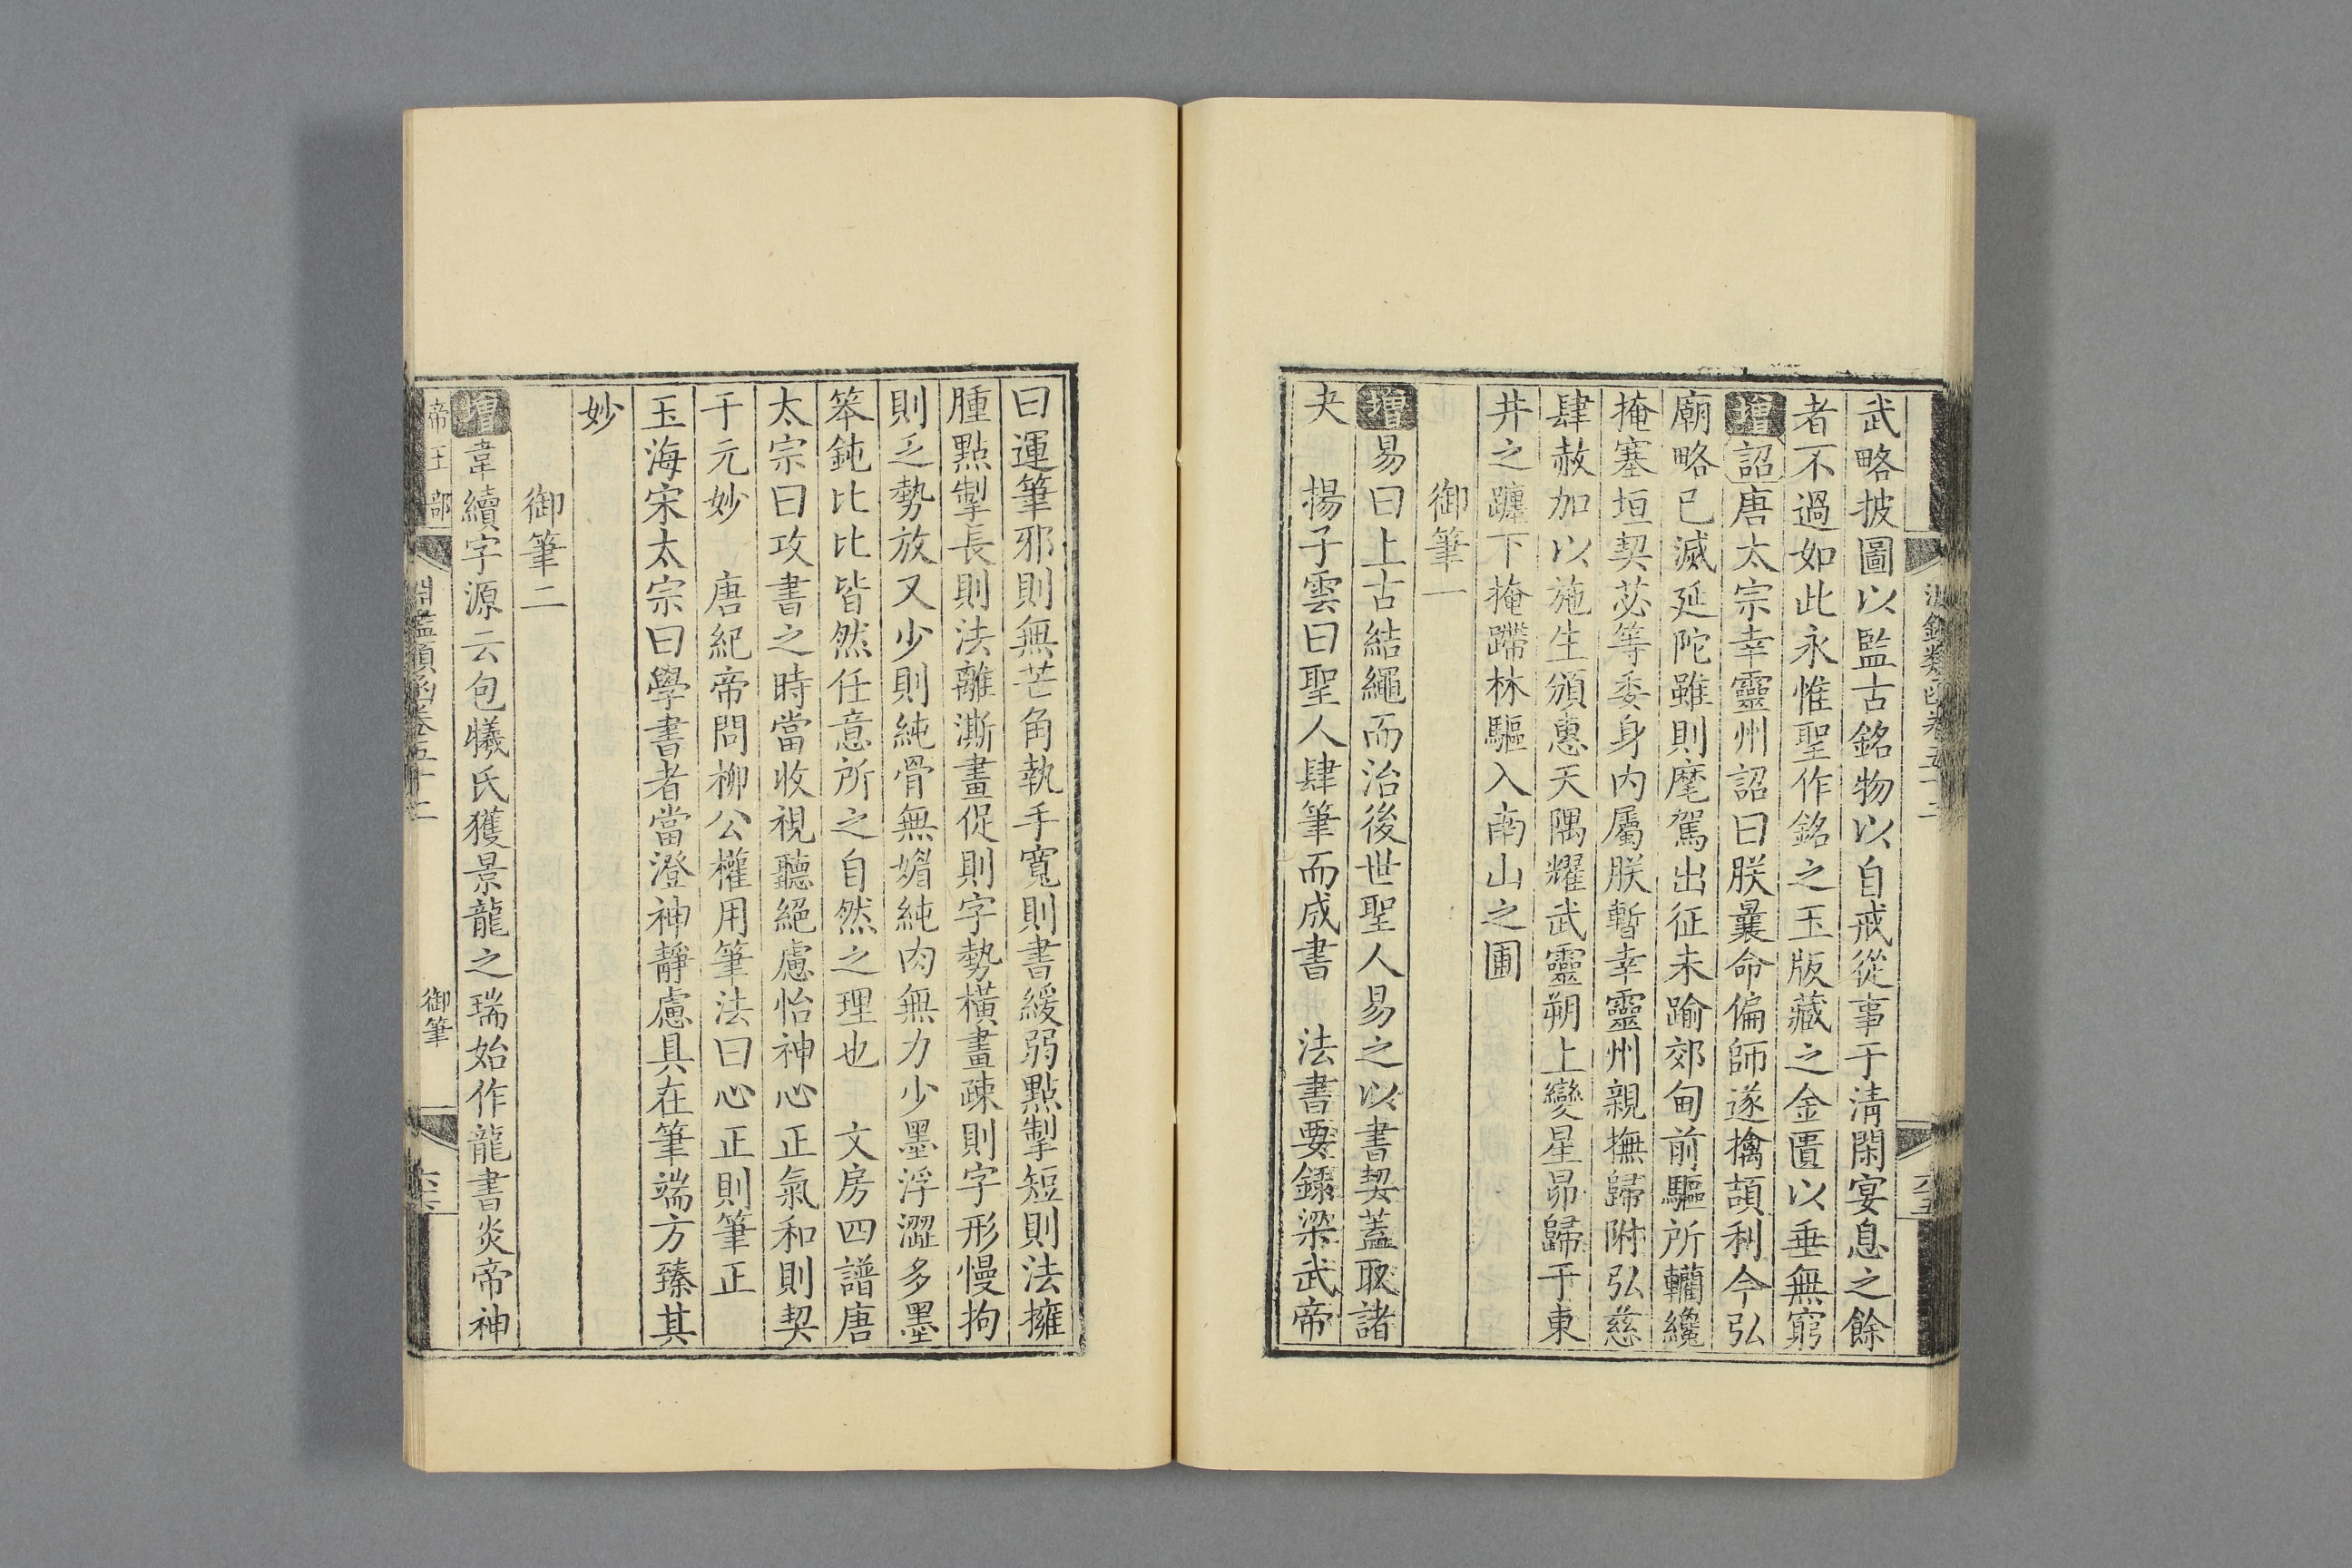 武略披圖以監古銘物以自戒從事于清閑宴息之餘
者不過如此永惟聖作銘之玉版藏之金匱以垂無窮
增詔唐太宗幸靈州詔曰朕曩命偏師遂擒頡利今弘
廟略已滅延陀雖則麾駕出征未踰郊甸前驅所轥纔
掩塞垣契苾等委身內屬朕暫幸靈州親撫歸附弘慈
肆赦加以施生頒惠天隅耀武靈朔上變星昴歸于東
井之躔下掩蹛林驅入南山之圃
御筆一
增易曰上古結繩而治後世聖人易之以書契蓋取諸
夬 揚子雲曰聖人肆筆而成書 法書要錄梁武帝
曰運筆邪則無芒角執手寬則書緩弱點掣短則法擁
腫點掣長則法離澌畫促則字勢橫畫疎則字形慢拘
則乏勢放又少則純骨無媚純肉無力少墨浮澀多墨
笨鈍比比皆然任意所之自然之理也 文房四譜唐
太宗曰攻書之時當收視聽絕慮怡神心正氣和則契
于元妙 唐紀帝問柳公權用筆法曰心正則筆正
玉海宋太宗曰學書者當澄神靜慮具在筆端方臻其
妙
御筆二
增韋續字源云包犧氏獲景龍之瑞始作龍書炎帝神
帝王部 淵鑑類函卷五十二 御筆